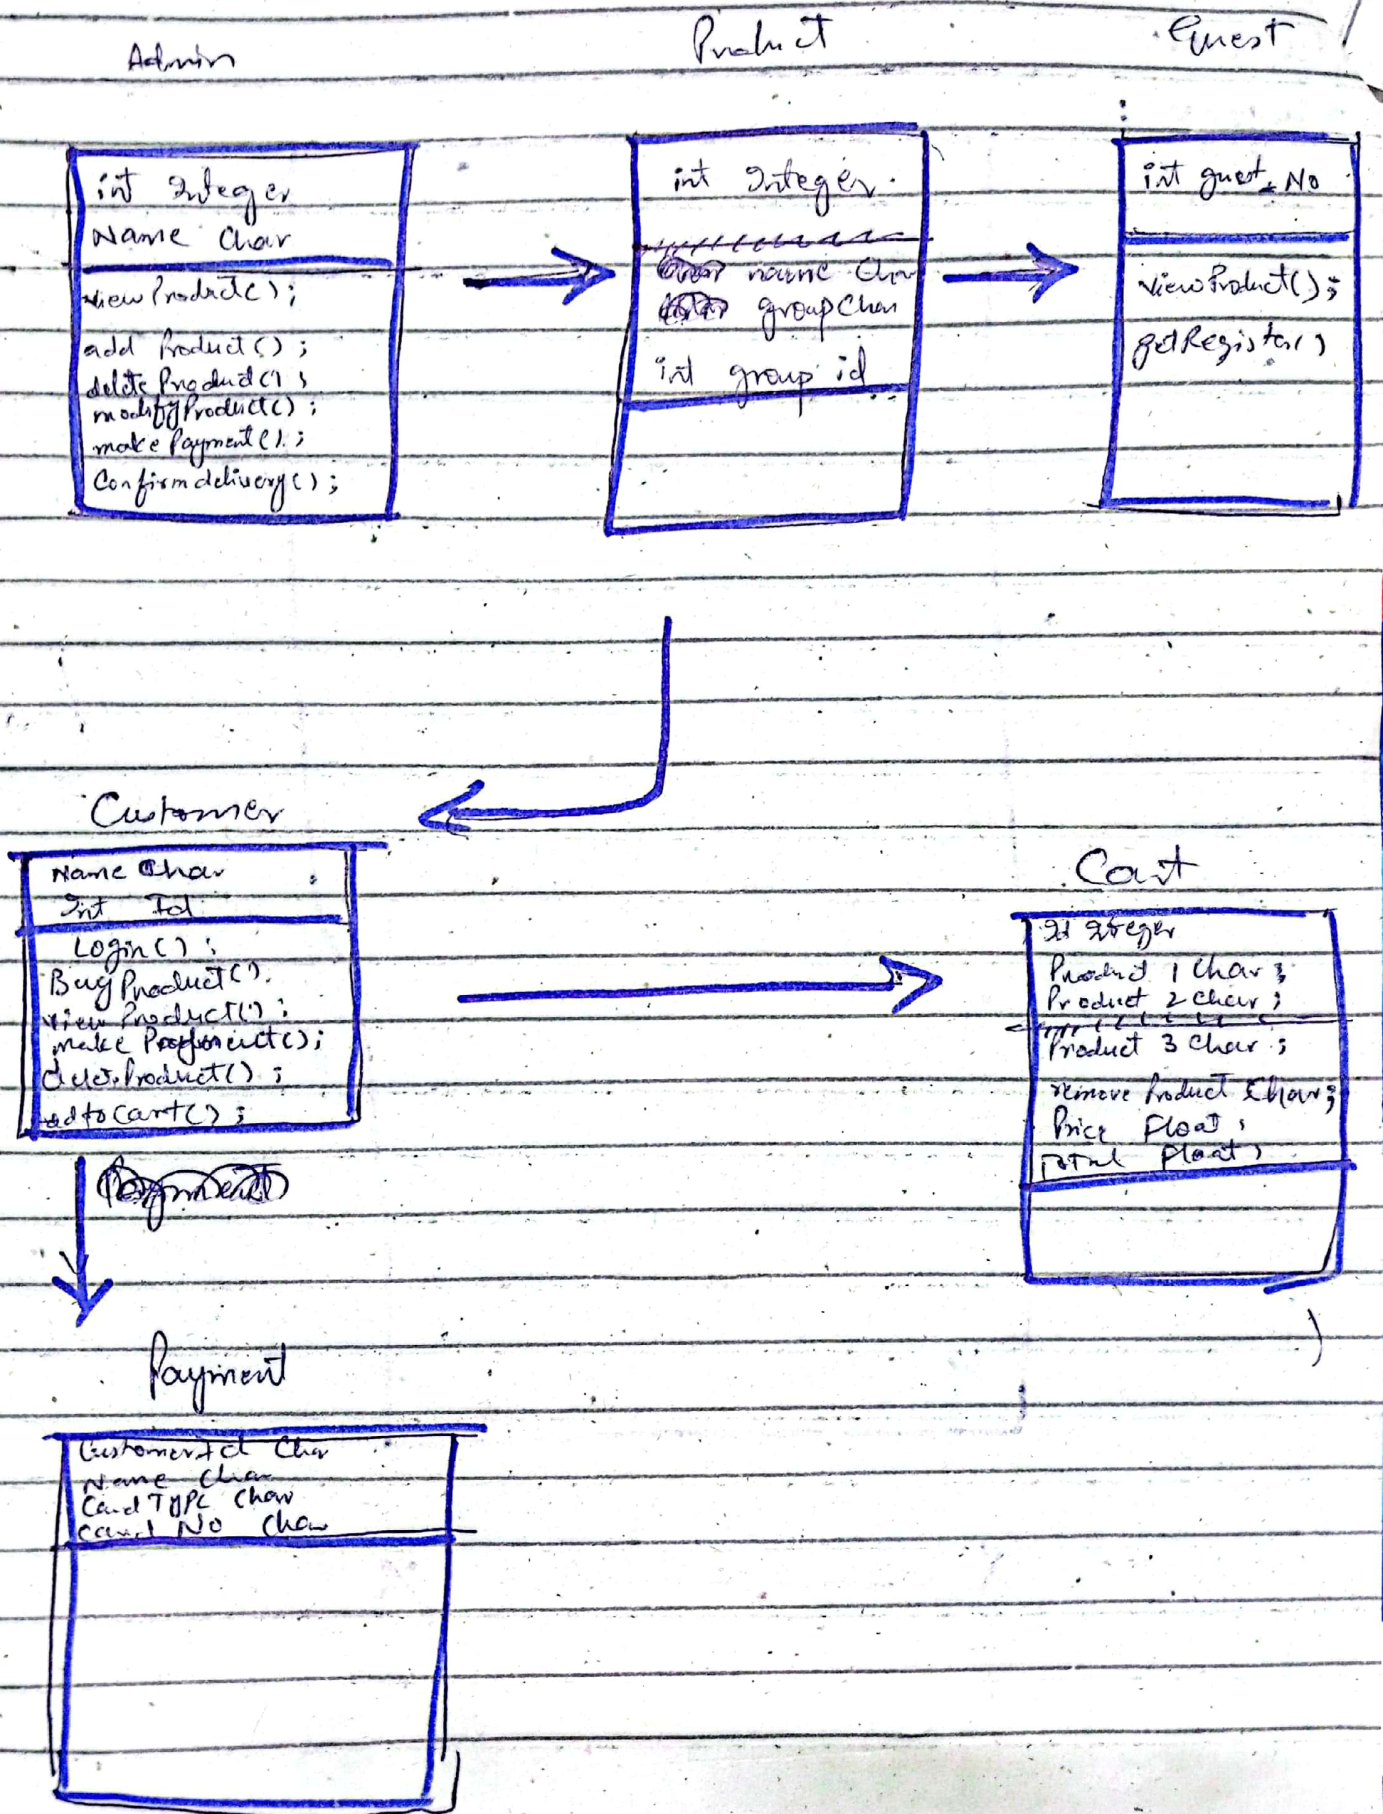 Admin
Product
Guest
int Integer
Name Char
viewProduct();
add Product();
deleteProduct();
modifyProduct();
makePayment();
Confirmdelivery();
int Integer.
name Char
groupChar
int group id
int guest_No
viewProduct();
getRegister()
Customer
Name Char
Int Id
Login();
BuyProduct().
viewProduct();
make
Product();
adtocart();
Cart
Id Integer
Product 1 Char;
Product 2 Char;
Product 3 Char;
remove Product Char;
Price Float;
Total Float;
Payment
CustomerId Char
Name Char
Card Type Char
Card No Char